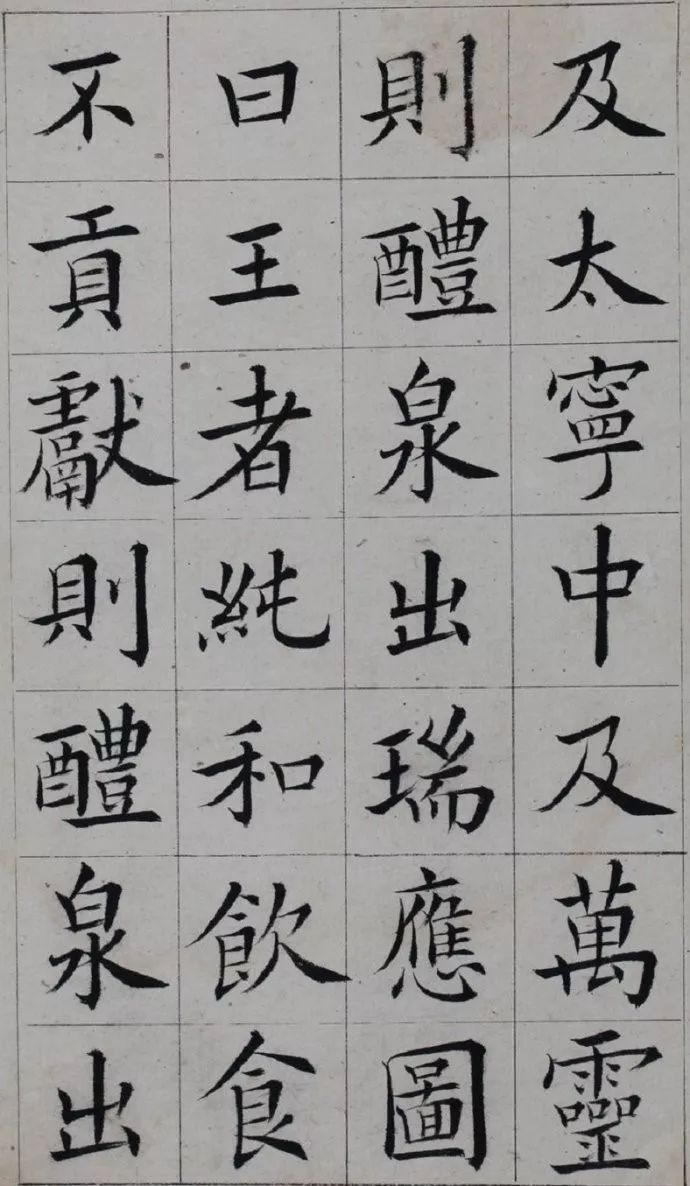 及太寧中及萬靈
則醴泉出瑞應圖
曰王者純和飲食
不貢獻則醴泉出